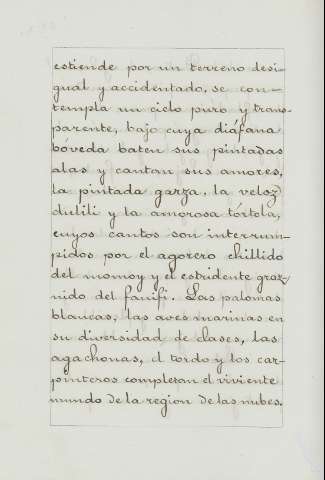 estiende por un terreno desi-
gual y accidentado, se con-
templa un cielo puro y trans-
parente, bajo cuya diáfana
bóveda baten sus pintadas
alas y cantan sus amores,
la pintada garza, la veloz
dulili y la amorosa tórtola,
cuyos cantos son interrum-
pidos por el agorero chillido
del momoy y el estridente graz-
nido del fanifi. Las palomas
blancas, las aves marinas en
su diversidad de clases, las
agachonas, el tordo y los car-
pinteros completan el viviente
mundo de la region de las nubes.